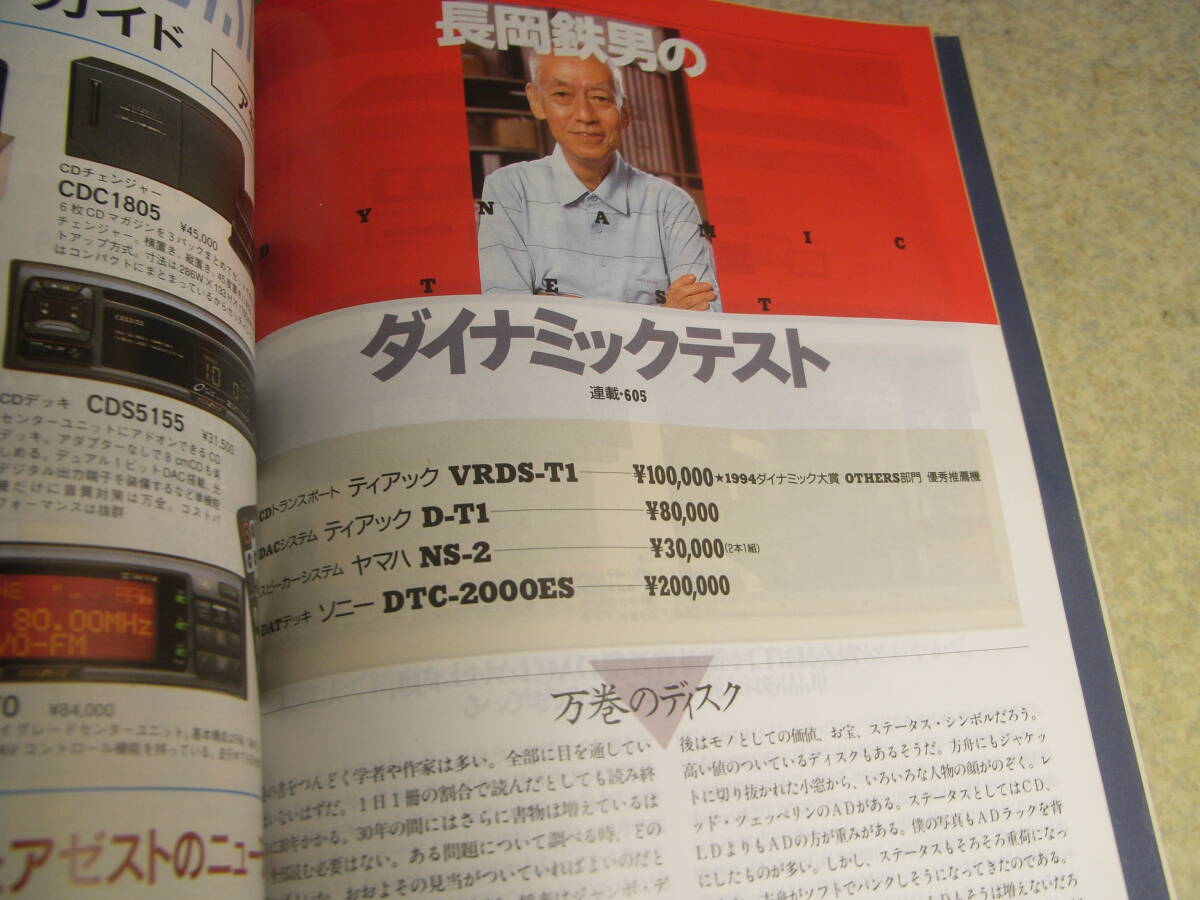 ガイド
CDチェンジャー
CDC1805 ¥45,000
6枚CDマガジンを3パックまとめて
チェンジャー。横置き、縦置き、45度置き
トアップ方式。寸法は286W×133H×
はコンパクトにまとまっているからセッティ
CDデッキ CDS5155 ¥31,500
センターユニットにアドオンできるCD
デッキ。アダプターなしで8cmCDも楽
しめる。デュアル1ビットDAC搭載、光
デジタル出力端子を装備するなど単機能
機だけに音質対策は万全。コストパ
フォーマンスは抜群
80.00MHz
VO-FM
¥84,000
イグレードセンターユニット。基本構成は
AVコントロール機能を持っている。走行中で
アゼストのニュー
長岡鉄男の
DYNAMIC
TEST
ダイナミックテスト
連載・605
CDトランスポート ティアック VRDS-T1 ¥100,000 ★1994ダイナミック大賞 OTHERS部門 優秀推薦機
DACシステム ティアック D-T1 ¥80,000
スピーカーシステム ヤマハ NS-2 ¥30,000(2本1組)
DATデッキ ソニー DTC-2000ES ¥200,000
万巻のディスク
の書をつんどく学者や作家は多い。全部に目を通してい
いないはずだ。1日1冊の割合で読んだとしても読み終
に30年かかる。30年の間にはさらに書物は増えているは
全部読む必要はない。ある問題について調べる時、どの
おおよその見当がついていればよいのだと
後はモノとしての価値、お宝、ステータス・シンボルだろう。
高い値のついているディスクもあるそうだ。方舟にもジャケッ
トに切り抜かれた小窓から、いろいろな人物の顔がのぞく。レ
ッド・ツェッペリンのADがある。ステータスとしてはCD、
LDよりもADの方が重みがある。僕の写真もADラックを背
にしたものが多い。しかし、ステータスもそろそろ重荷になっ
方舟がソフトでパンクしそうになってきたのである。
LDもそうは増えないだろ